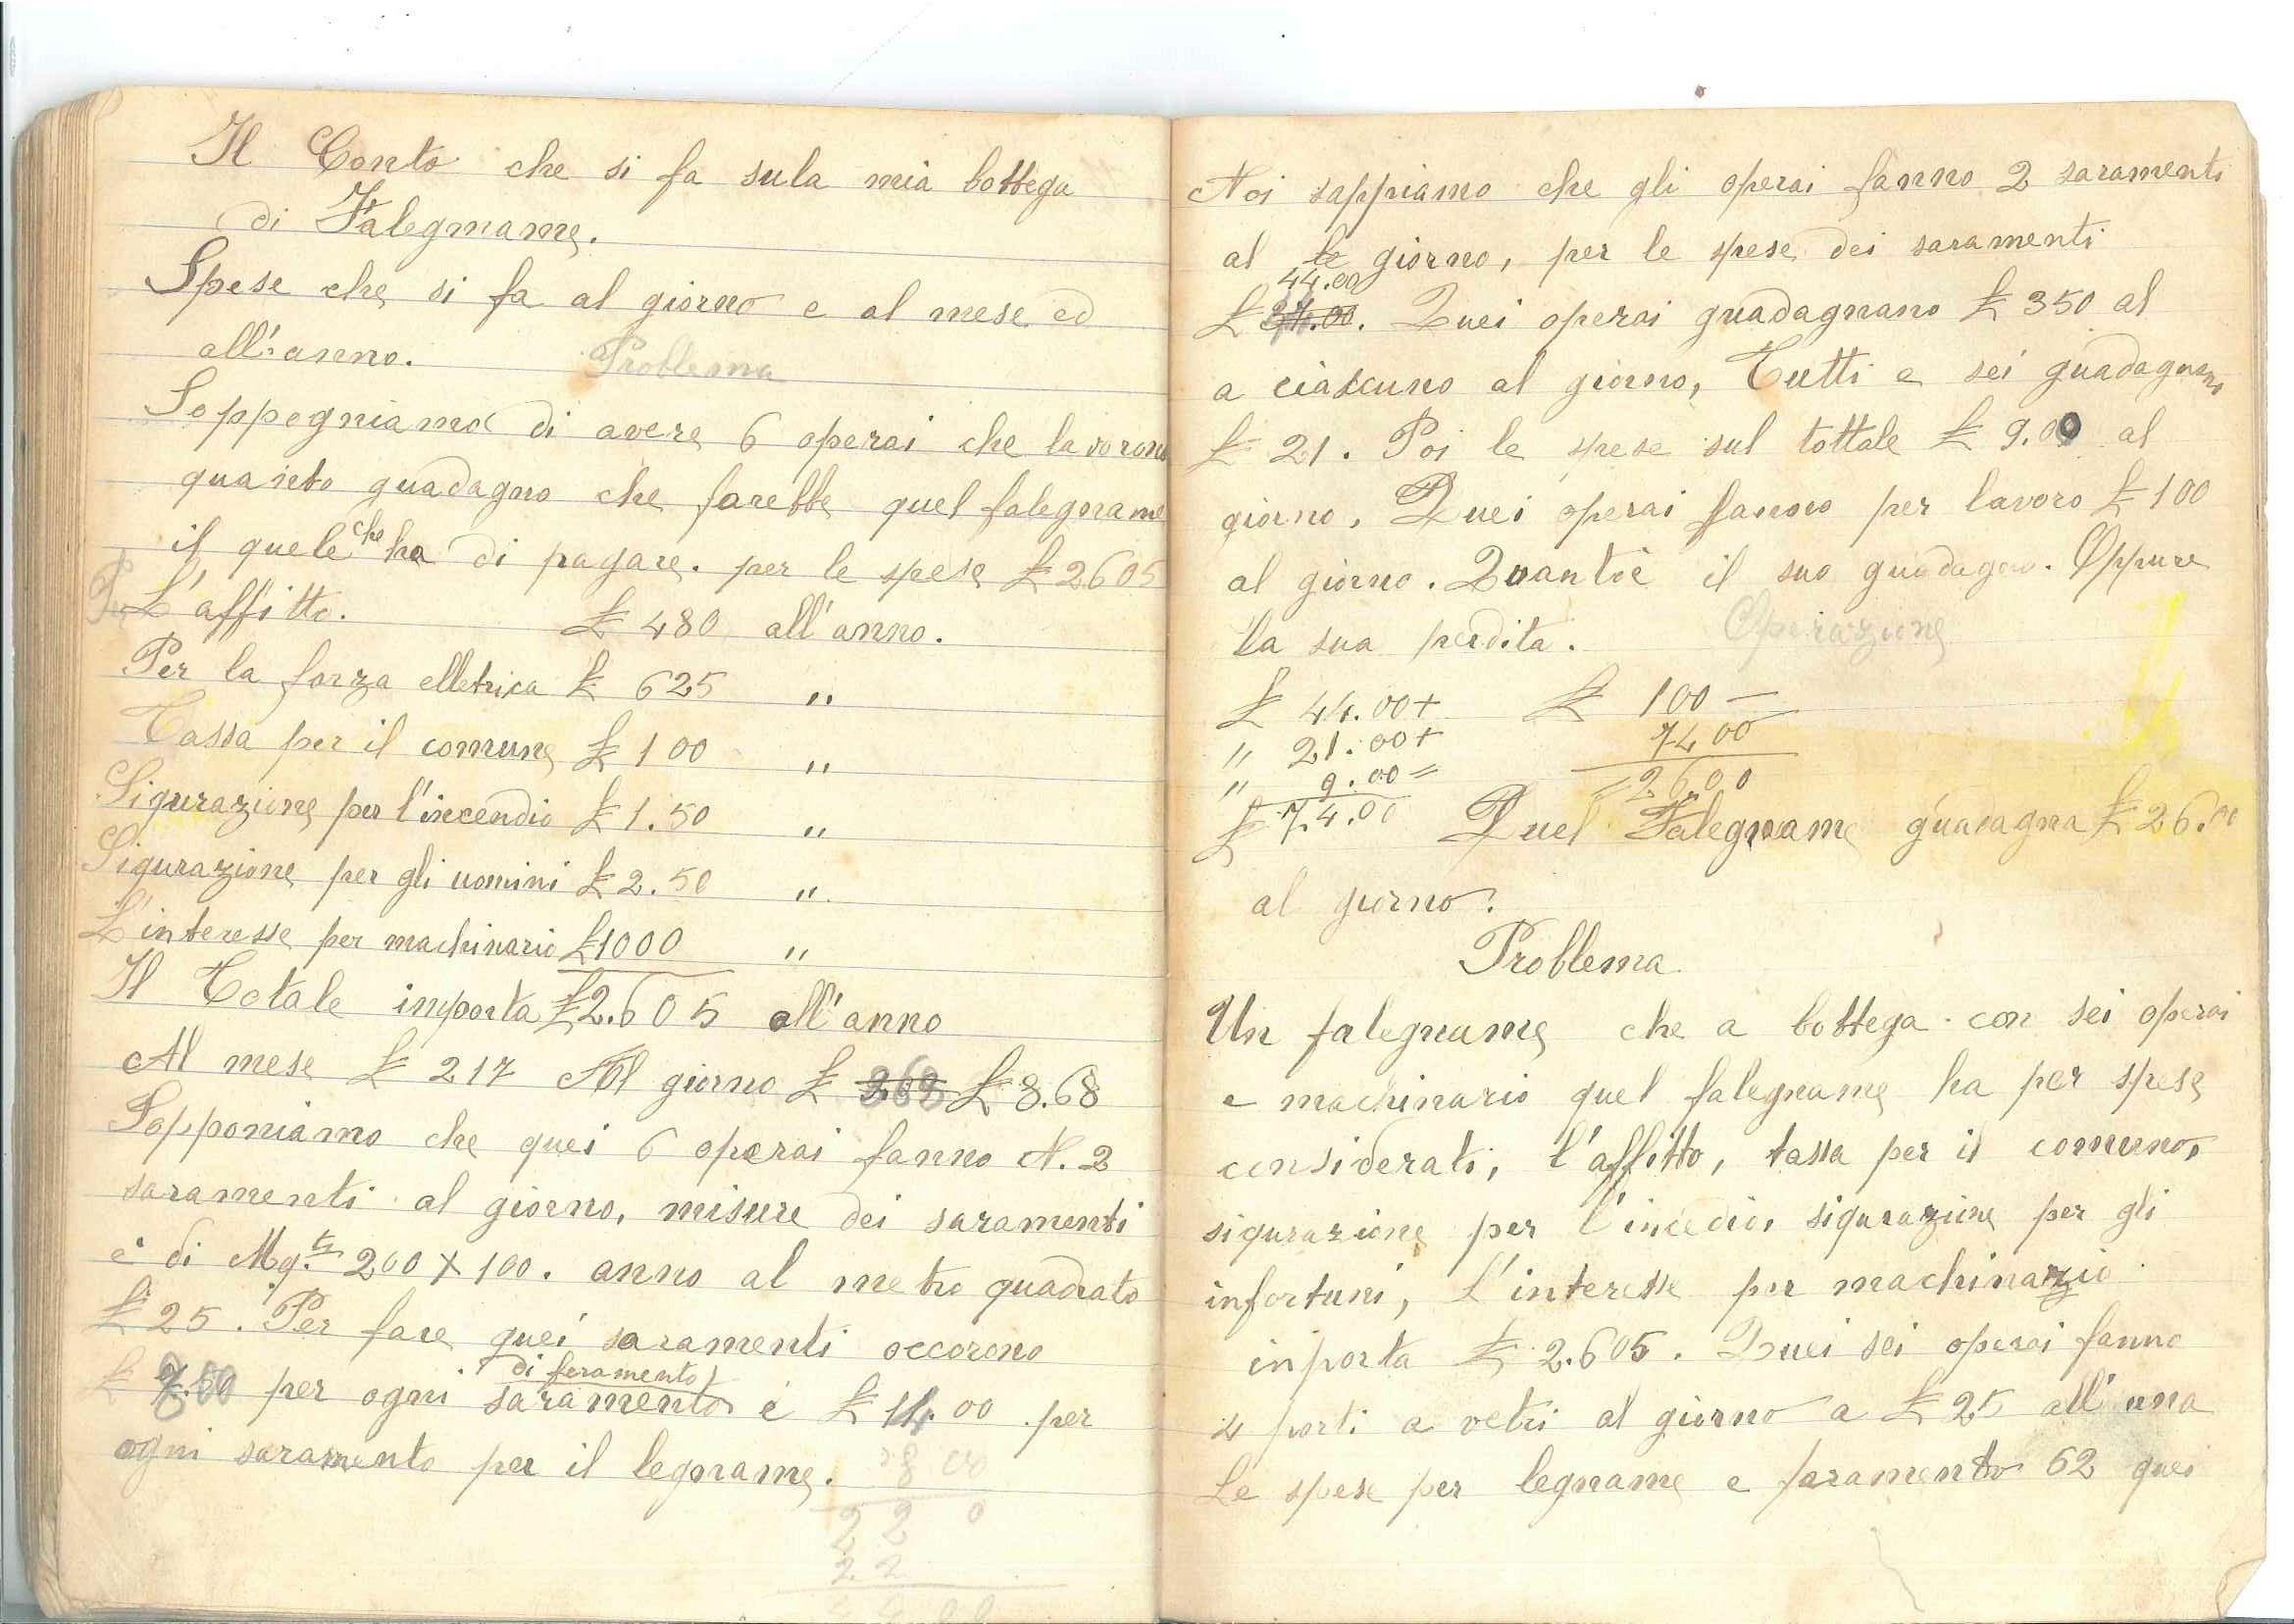 Il Conto che si fa sula mia bottega
di Falegname.
Spese che si fa al giorno e al mese ed
all'anno. Problema
Soppogniamo di avere 6 operai che lavorono
quanto guadagno che farebbe quel falegname
il quele che ha di pagare. per le spese £ 2605
L'affitto. £ 480 all'anno.
Per la forza elletrica £ 625 "
Tassa per il comune £ 100 "
Sigurazione per l'incendio £ 1.50 "
Sigurazione per gli uomini £ 2.50 "
L'interesse per machinario £1000 "
Il Totale importa £2.605 all'anno
Al mese £ 217 Al giorno £ £ 8.68
Sopponiamo che quei 6 operai fanno N. 2
saramenti al giorno, misure dei saramenti
e di Mq. 200 X 100. anno al metro quadrato
£ 25. Per fare quei saramenti occorono
di feramento
£ per ogni saramento é £ 14.00 per
ogni saramento per il legname.
Noi sappiamo che gli operai fanno 2 saramenti
al le giorno, per le spese dei saramenti
44.00
£ . Quei operai guadagnano £ 350 al
a ciascuno al giorno, Tutti e sei guadagnano
£ 21. Poi le spese sul tottale £ 9.00 al
giorno. Quei operai fanno per lavoro £ 100
al giorno. Quantoè il suo guadagno. Oppure
la sua perdita. Operazione
£ 44.00+ £ 100 —
" 21.00+ 74 00
" 9.00= = 26.00
£ 74.00 Quel Falegname guadagna £ 26.00
al giorno.
Problema
Un falegname che a bottega con sei operai
e machinario quel falegname ha per spese
considerati, l'affitto, tassa per il comuno,
sigurazione per l'incedio, sigurazione per gli
infortuni, l'interesse per machinarzio
inporta £ 2.605. Quei sei operai fanno
4 porti a vetri al giorno a £ 25 all'una
Le spese per legname e faramento 62 quei